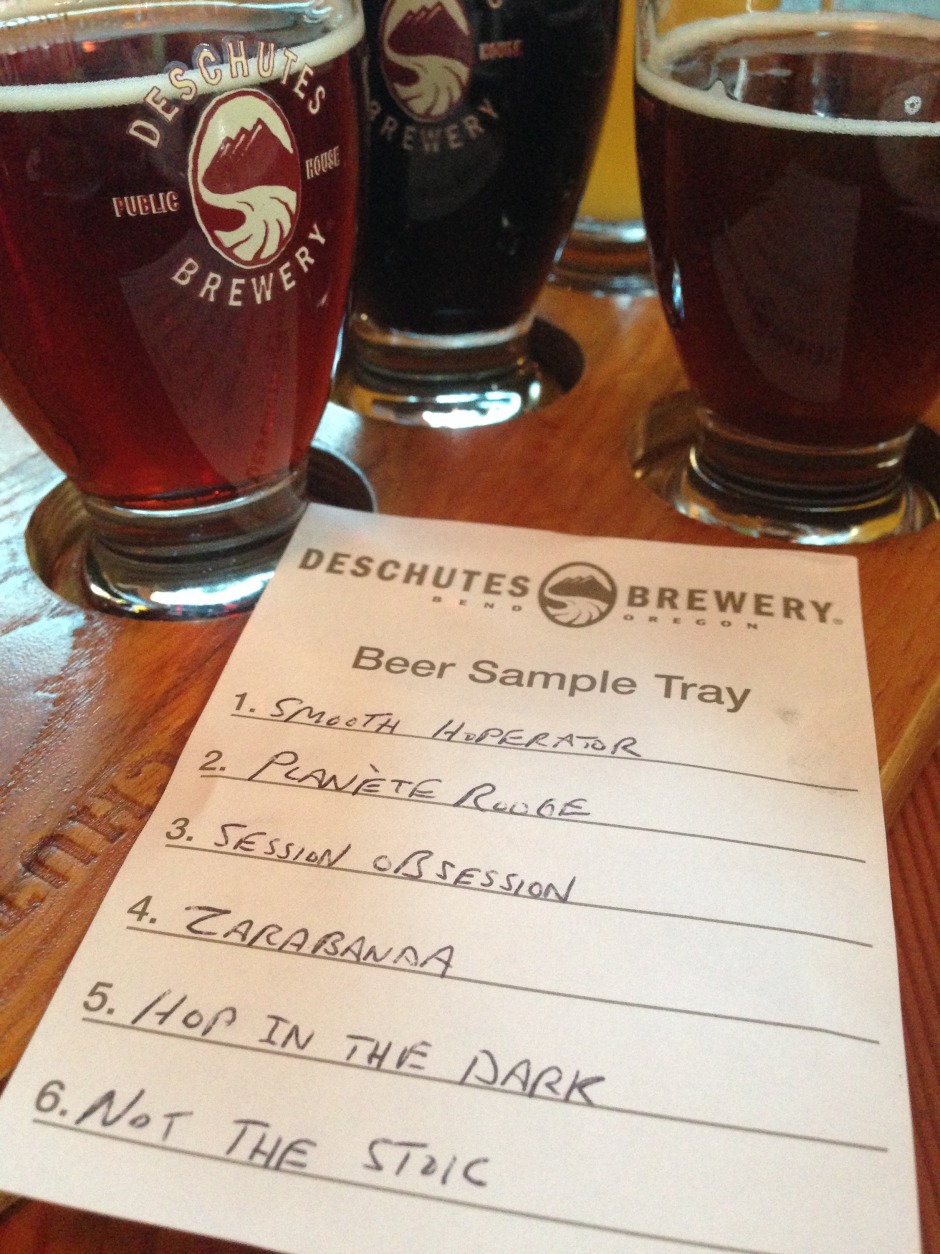 DESCHUTES
PUBLIC HOUSE
BREWERY
HOUSE
BREWERY
DESCHUTES BREWERY
BEND OREGON
Beer Sample Tray
1. SMOOTH HOPERATOR
2. PLANÈTE ROUGE
3. SESSION OBSESSION
4. ZARABANDA
5. HOP IN THE DARK
6. NOT THE STOIC